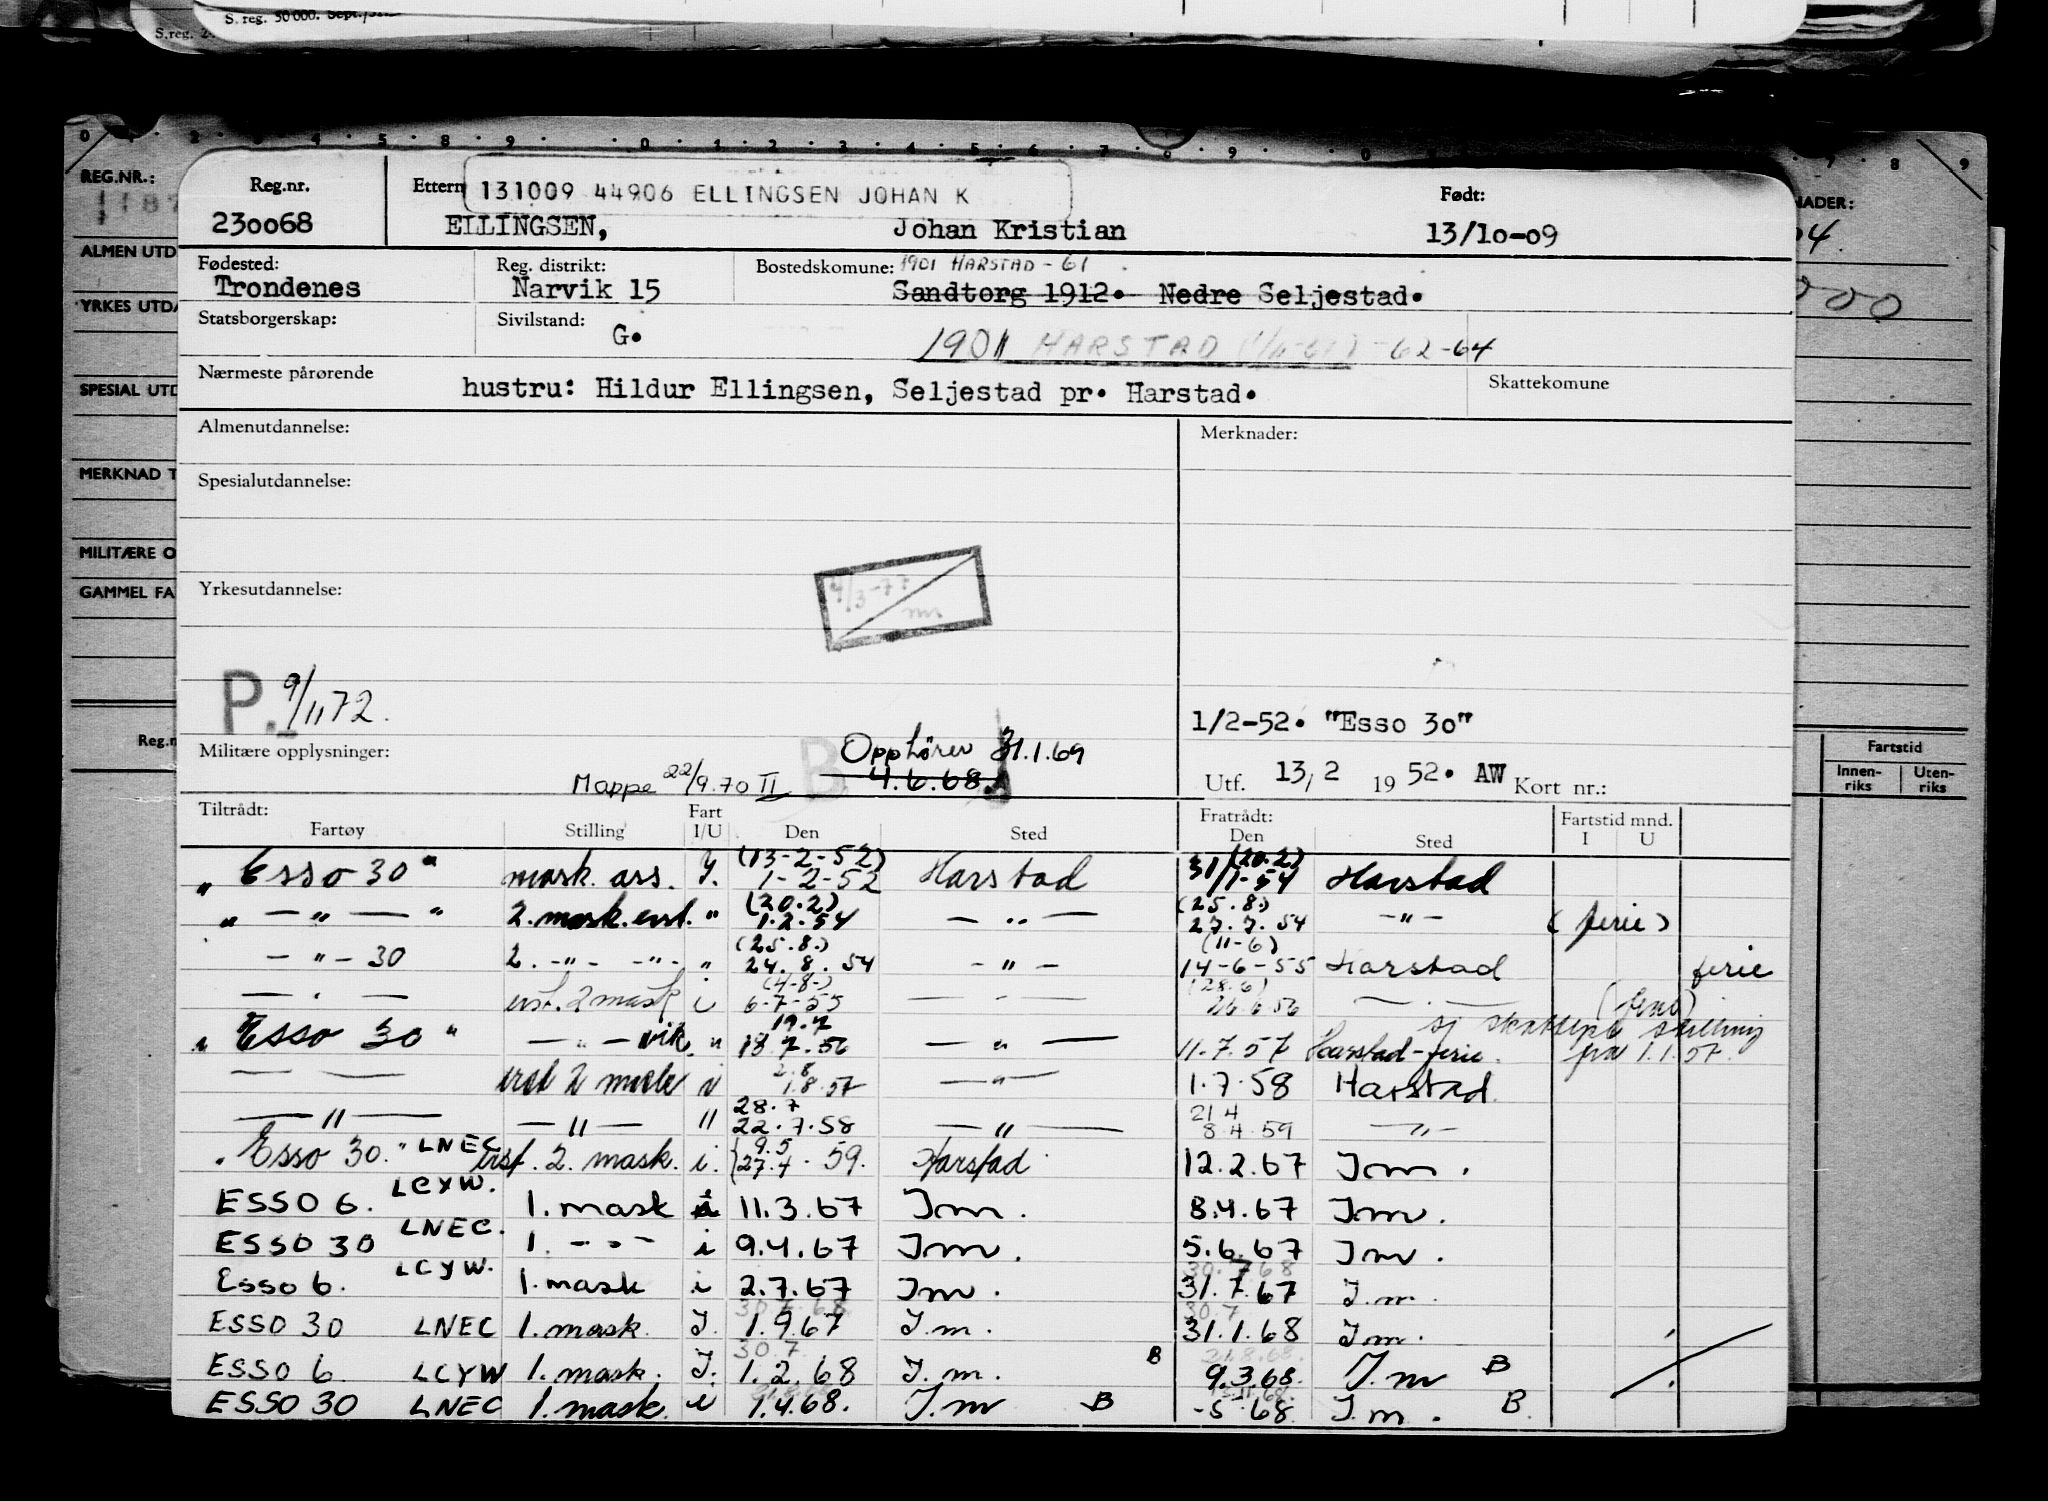 S. reg. 50000. Sept.
S.reg. 2
REG.NR.:
ALMEN UTD
YRKES UTDA
SPESIAL UTD
MERKNAD T
MILITÆRE O
GAMMEL FA
Reg.n
NADER:
Fartstid
Innen-riks Uten-riks
Reg.nr. Ettern 131009 44906 ELLINGSEN JOHAN K Født:
230068 ELLINGSEN, Johan Kristian 13/10-09
Fødested: Reg. distrikt: Bostedskomune: 1901 HARSTAD - 61
Trondenes Narvik 15 Sandtorg 1912. Nedre Seljestad.
Statsborgerskap: Sivilstand:
G. 1901 HARSTAD -62-64
Nærmeste pårørende Skattekomune
hustru: Hildur Ellingsen, Seljestad pr. Harstad.
Almenutdannelse: Merknader:
Spesialutdannelse:
Yrkesutdannelse:
P. 9/11 72.
1/2-52. "Esso 30"
Militære opplysninger: B Opphører 31.1.69
Mappe 22/9.70 II 4.6.68.
Utf. 13/2 1952. AW Kort nr.:
Tiltrådt: Fart Fratrådt: Fartstid mnd.
Fartøy Stilling I/U Den Sted Den Sted I U
(13-2-52) (20.2)
„ Esso 30 " mask. ass. I. 1-2-52 Harstad 31/1-54 Harstad
(20.2) (25.8.)
„ — „ — " 2. mask. " 1.2.54 — „ — 27.7.54 — " — (ferie)
(25.8.) (11-6)
— " — 30 2. -"- -"- „ 24.8.54 - " - 14-6-55 Harstad ferie
(4-8-) (28.6)
— " — 2 mask i 6-7-55 — — 26.6.56 —
19.7
„ Esso 30 " — " — vik. " 18.7.56 — " — 11.7.57 Harstad-ferie. stilling fra 1.1.57.
2.8
— — 2 mask i 1.8.57 — " — 1.7.58 Harstad.
28.7 21 4
— " — — " — " 22.7.58 — " — 8.4.59 — " —
9.5
„ Esso 30. " LNEC 2. mask. i. 27.4.59. Harstad 12.2.67 Im.
ESSO 6. LCYW. 1. mask i 11.3.67 Im. 8.4.67 Im.
ESSO 30 LNEC. 1. -"- i 9.4.67 Im. 5.6.67 Im.
30.7 68
Esso 6. LCYW. 1. mask i 2.7.67 Im. 31.7.67 I.m.
30.7
ESSO 30 LNEC 1. mask. I. 1.9.67 I.m. 31.1.68 I.m.
30.7
ESSO 6 LCYW 1. mask. I. 1.2.68 I.m. B 9.3.68. I.m B
ESSO 30 LNEC 1. mask. i 1.4.68. I.m B -5 68 I.m. B.